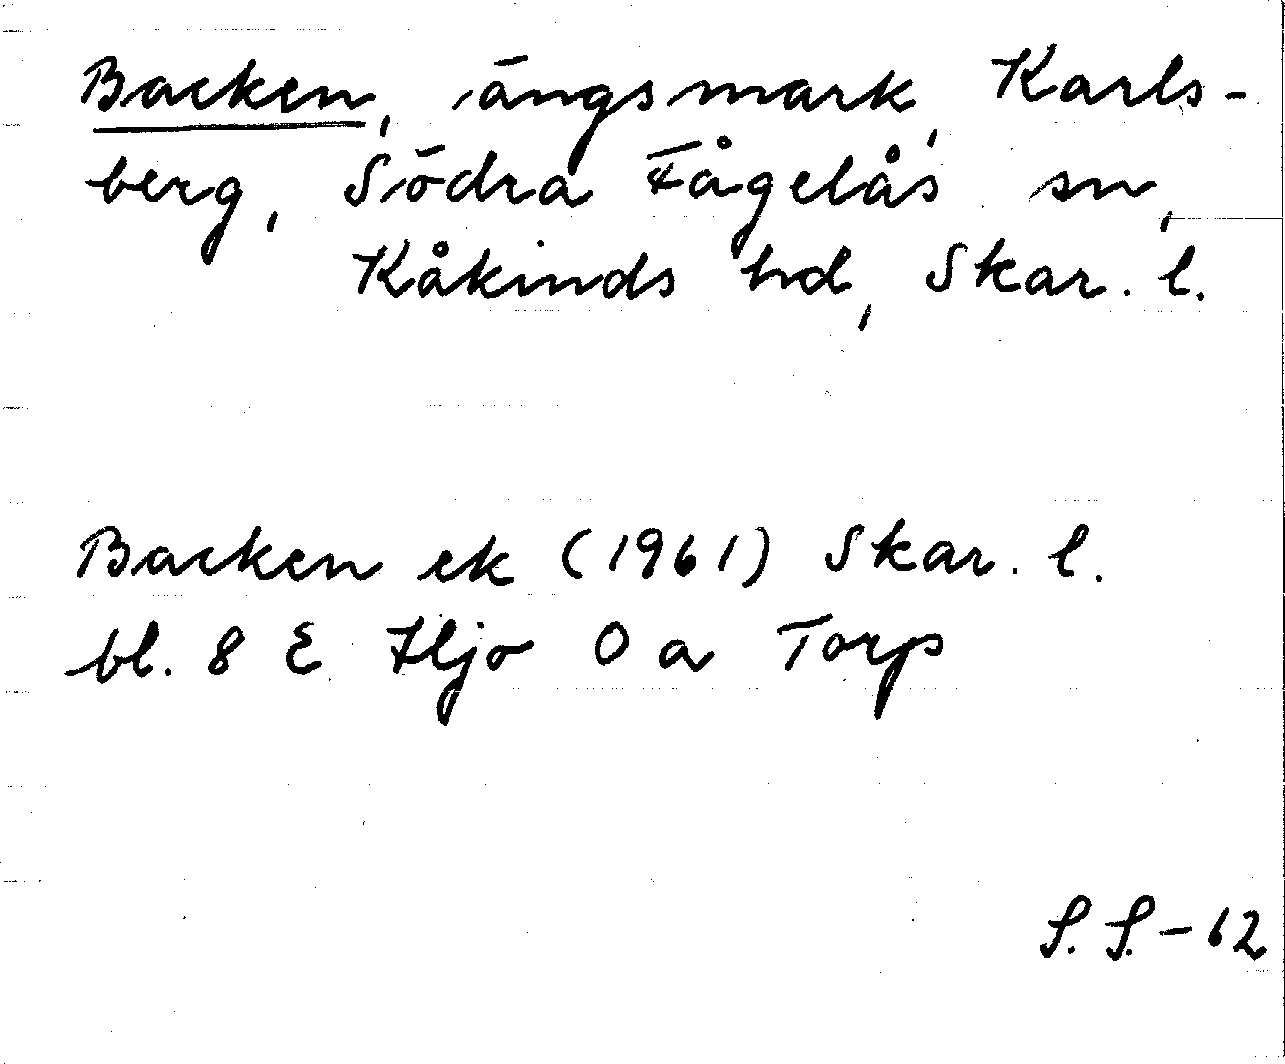 Backen, ängsmark, Karls-
berg, Södra Fågelås sn,
Kåkinds hd, Skar. l.
Backen ek (1961) Skar. l.
bl. 8 E Hjo 0 a Torp
S. S. - 62